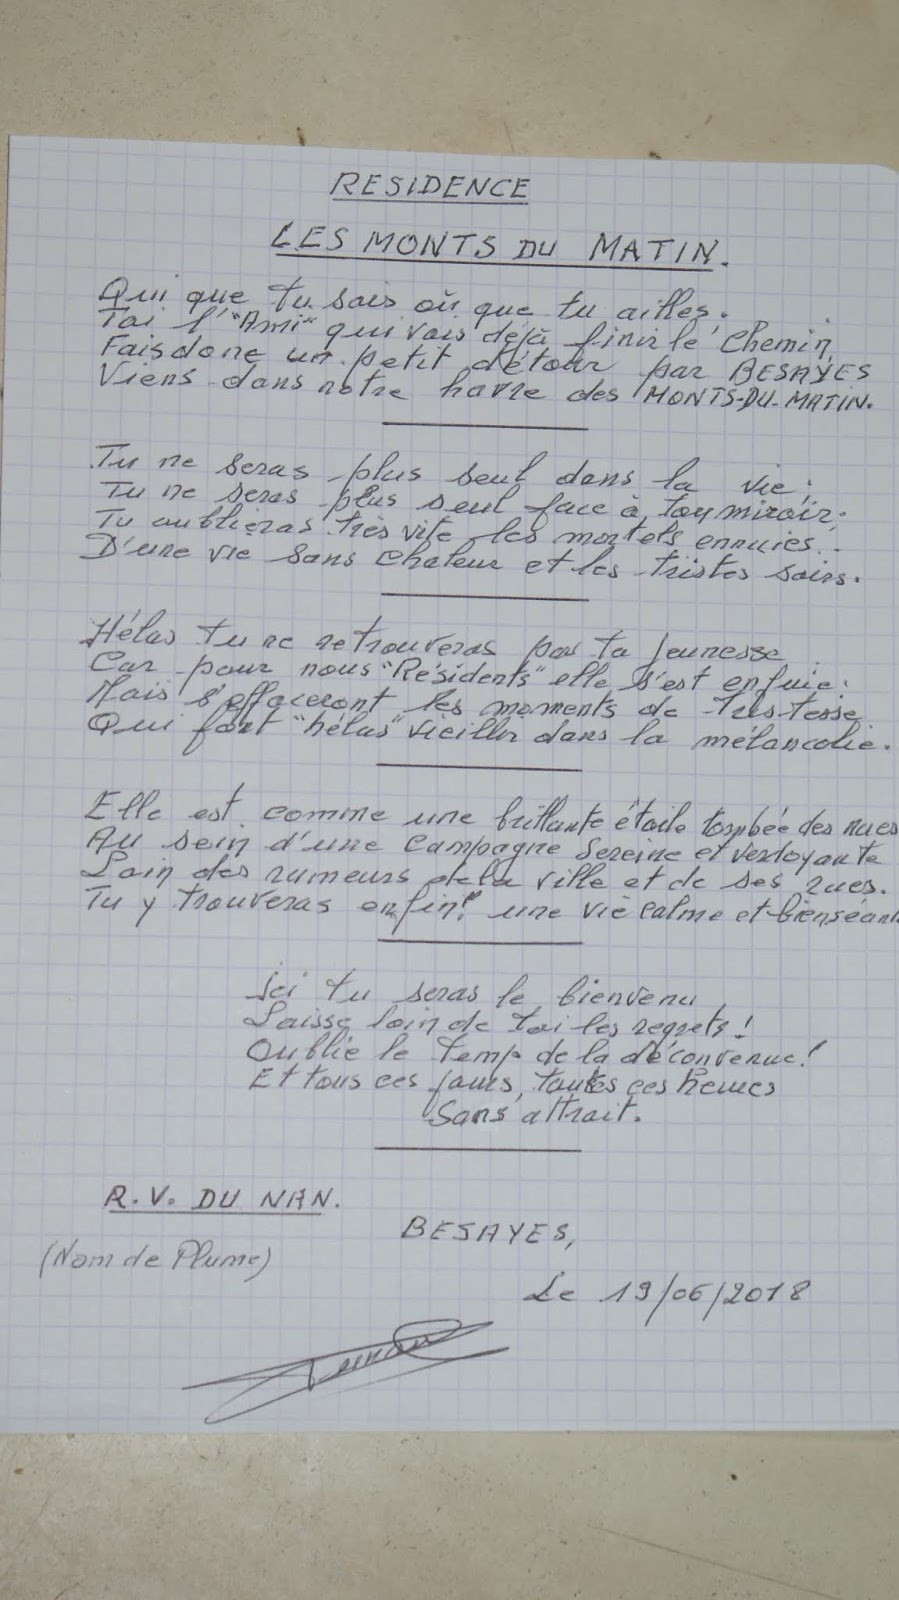 RESIDENCE
LES MONTS DU MATIN.
Qui que tu sois où que tu ailles.
Toi l'"Ami" qui vois déjà finir le Chemin,
Fais donc un petit détour par BESAYES
Viens dans notre havre des MONTS-DU-MATIN.
Tu ne seras plus seul dans la vie;
Tu ne seras plus seul face à ton miroir;
Tu oublieras très vite les mortels ennuies..
D'une vie sans chaleur et les tristes soirs.
Hélas tu ne retrouveras pas ta jeunesse
Car pour nous "Résidents" elle s'est enfuie.
Mais s'effaceront les moments de tristesse
Qui font "hélas" vieillir dans la mélancolie.
Elle est comme une brillante étoile tombée des nues
Au sein d'une Campagne Sereine et verdoyante
Loin des rumeurs de la ville et de ses rues.
Tu y trouveras enfin! une vie calme et bienséant
Ici tu seras le bienvenu
Laisse loin de toi les regrets!
Oublie le temp de la déconvenue!
Et tous ces jours, toutes ces heures
Sans attrait.
R.V. DU NAN.
BESAYES,
(Nom de Plume)
Le 19/06/2018